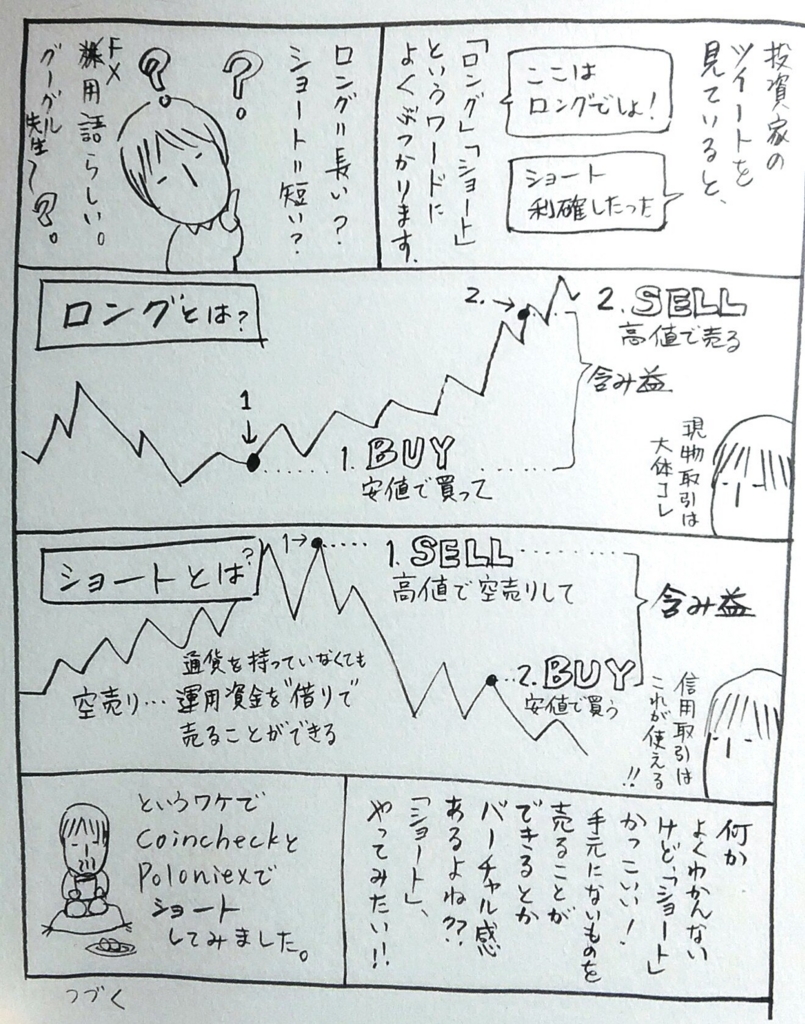 投資家の
ツイートを
見ていると、
ここは
ロングでしょ!
ショート
利確したった
「ロング」「ショート」
というワードに
よくぶつかります。
ロング=長い?
ショート=短い?
?
?
FX
用語らしい。
グーグル
先生〜?。
ロングとは?
1
2.→
2. SELL
高値で売る
含み益
1. BUY
安値で買って
現物取引は
大体コレ
ショートとは?
1→
1. SELL
高値で空売りして
含み益
2. BUY
安値で買う
空売り…
通貨を持っていなくても
運用資金を借りて
売ることができる
信用取引は
これが使える
!!
何か
よくわかんない
けど、「ショート」
かっこいい!
手元にないものを
売ることが
できるとか
バーチャル感
あるよね??
「ショート」、
やってみたい!!
というワケで
Coincheckと
Poloniexで
ショート
してみました。
つづく